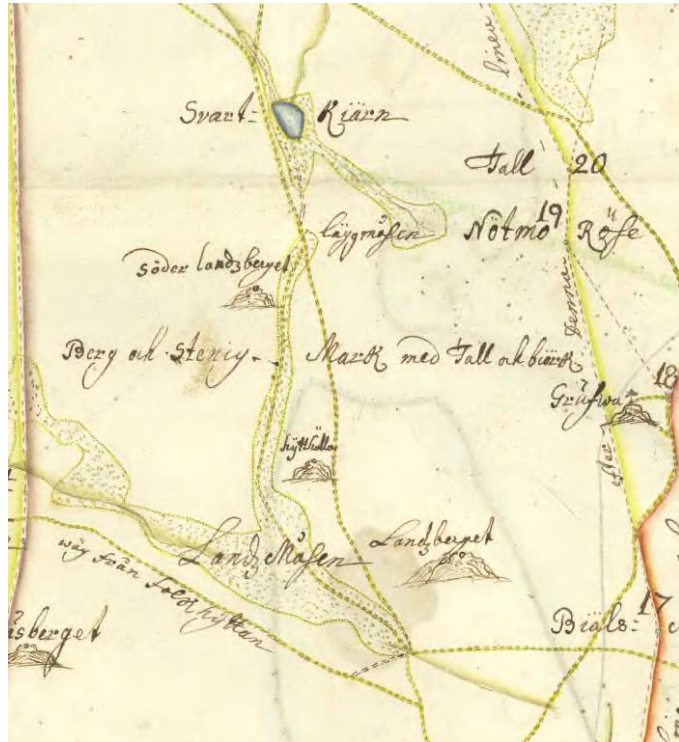 linea
Svart= Kiärn
Tall 20
19
Nötmo Röse
läggmåsen
Söder landzberget
denna
Berg och Stenig Mark med Tall och biörk
18
Grufwa
efter
hyttkulla
Landz Måsen
Landzberget
wäg från Fredzhyttan
17
Biäls=
åsberget